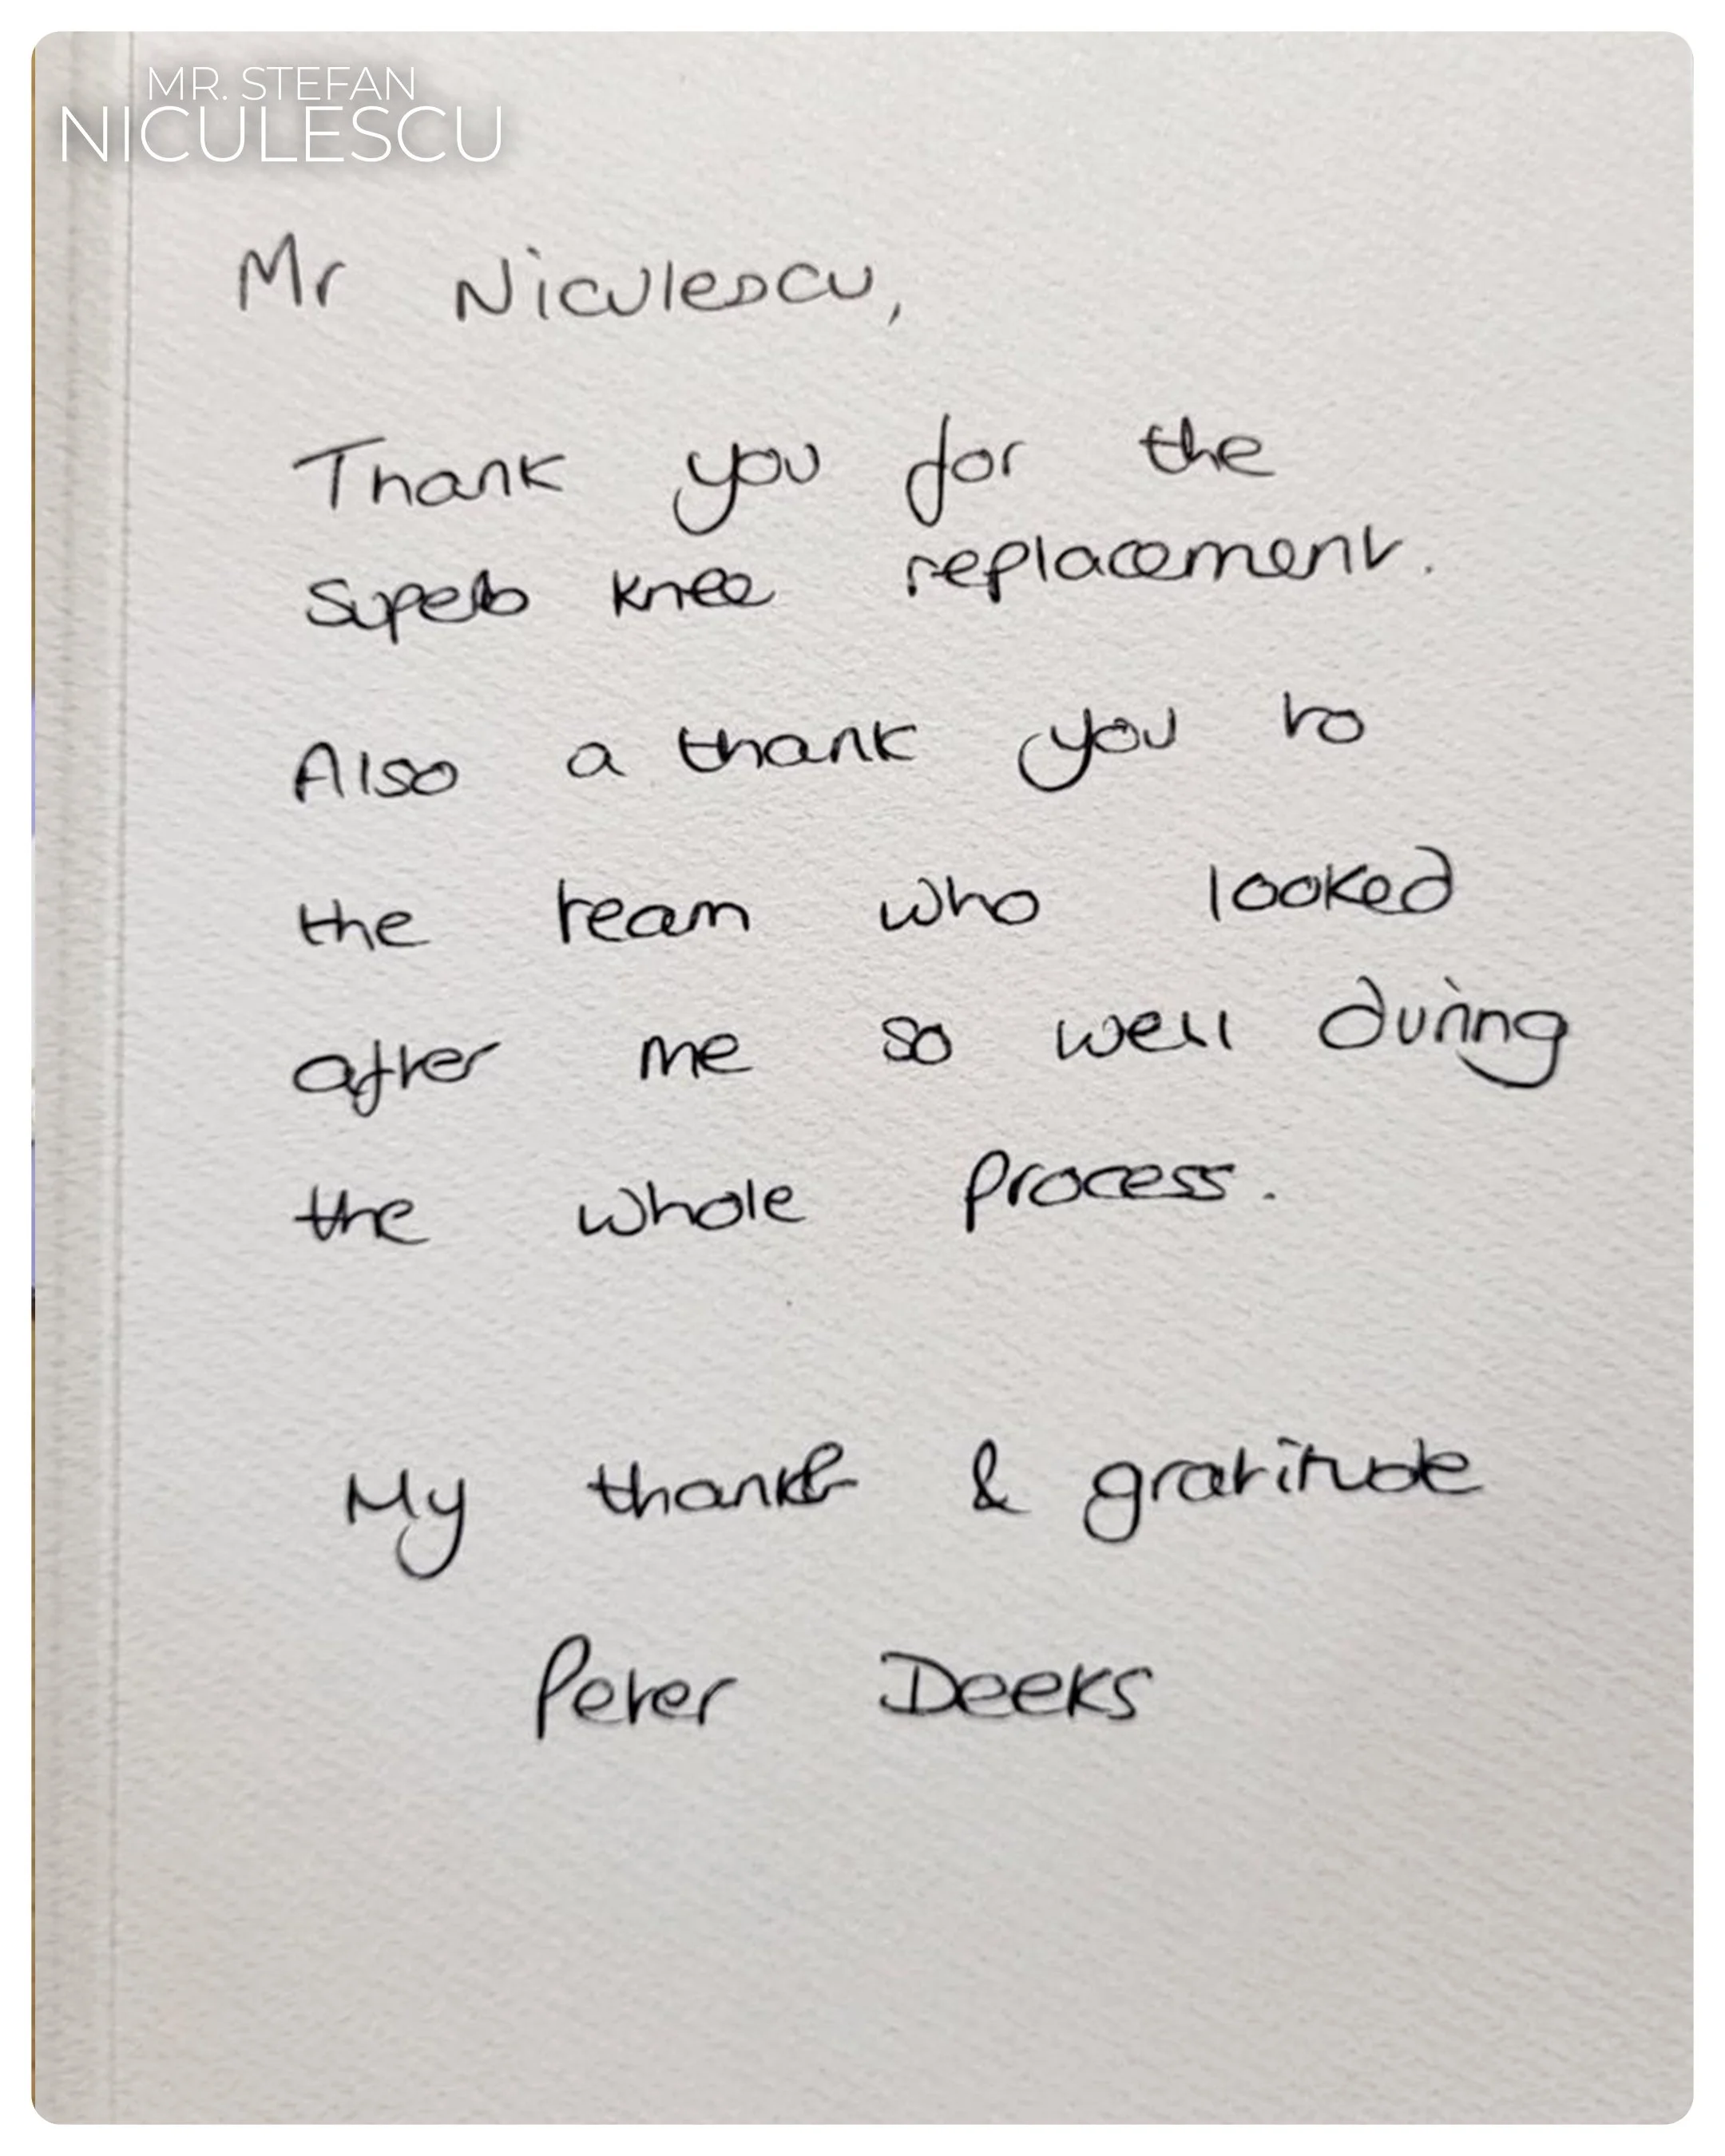 MR. STEFAN
NICULESCU
Mr Niculescu,
Thank you for the
superb knee replacement.
Also a thank you to
the team who looked
after me so well during
the whole process.
My thanks & gratitude
Peter Deeks